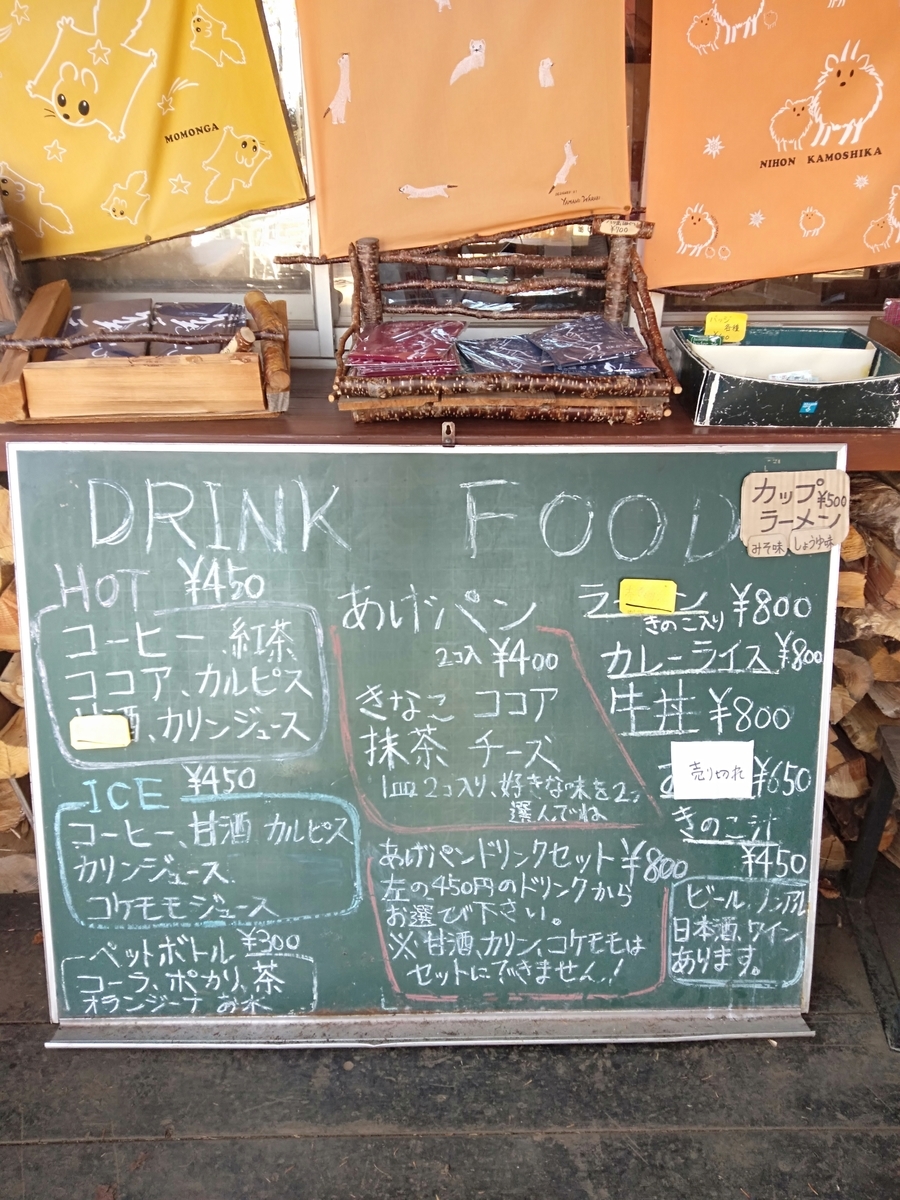 MOMONGA
NIHON KAMOSHIKA
¥700
バッジ
各種
DRINK
HOT ¥450
コーヒー、紅茶
ココア、カルピス
酒、カリンジュース
ICE ¥450
コーヒー、甘酒 カルピス
カリンジュース
コケモモジュース
ペットボトル ¥300
コーラ、ポカリ、茶
オランジーナ お水
FOOD
あげパン
2コ入 ¥400
きなこ ココア
抹茶 チーズ
1皿2コ入り、好きな味を2つ
選んでね
あげパンドリンクセット ¥800
左の450円のドリンクから
お選び下さい。
※甘酒、カリン、コケモモは
セットにできません!
カップ
ラーメン ¥500
みそ味 しょうゆ味
ラーメン ¥800
きのこ入り
カレーライス ¥800
牛丼 ¥800
売り切れ ¥650
きのこ汁
¥450
ビール、ノンアル
日本酒、ワイン
あります。